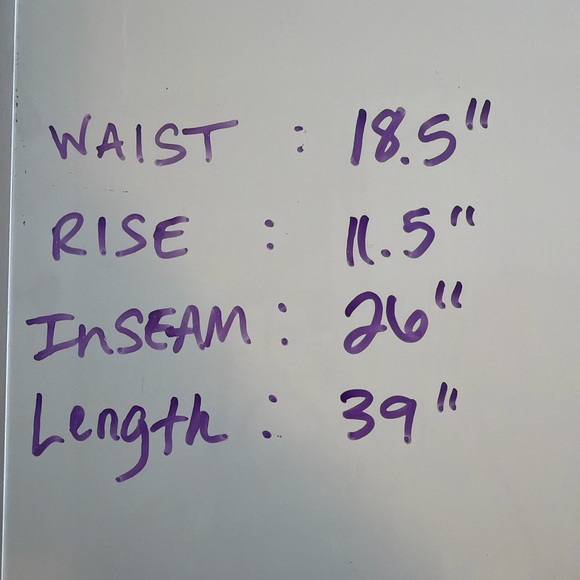 WAIST : 18.5"
RISE : 11.5"
InSEAM : 26"
Length : 39"